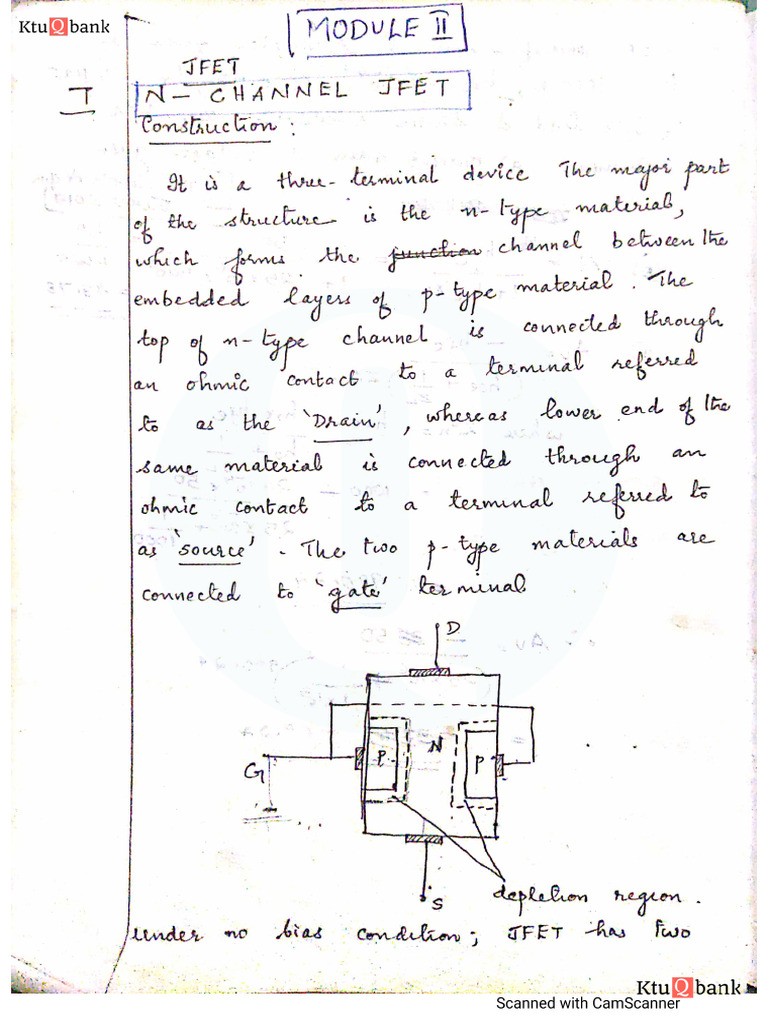 KtuQbank
MODULE II
JFET
I N- CHANNEL JFET
Construction :
It is a three-terminal device The major part
of the structure is the n-type material,
which forms the junction channel between the
embedded layers of p-type material. The
top of n-type channel is connected through
an ohmic contact to a terminal referred
to as the 'Drain', whereas lower end of the
same material is connected through an
ohmic contact to a terminal referred to
as 'source'. The two p-type materials are
connected to 'gate' terminal
D
N
P P
G
S
depletion region.
under no bias condition; JFET has two
KtuQbank
Scanned with CamScanner